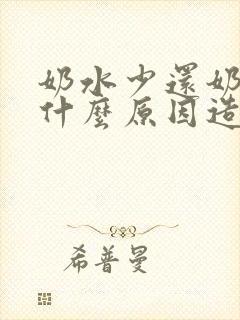 奶水少還奶
什麼原因造
希普曼